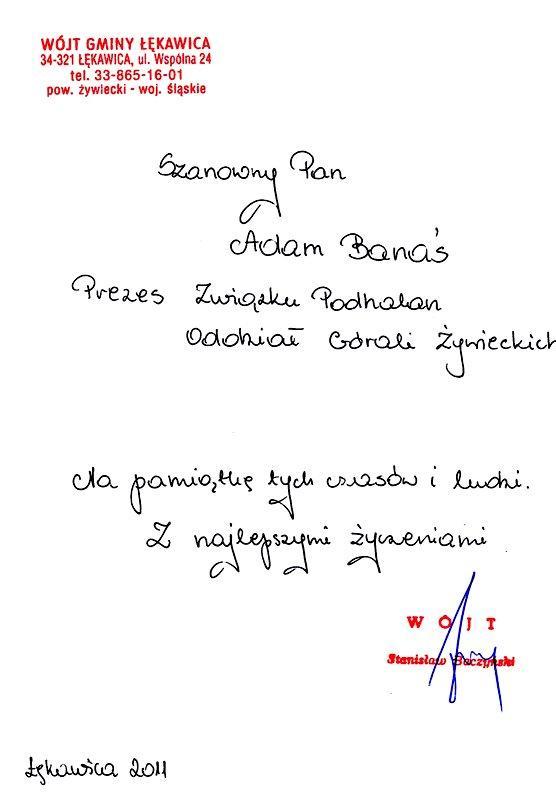 WÓJT GMINY ŁĘKAWICA
34-321 ŁĘKAWICA, ul. Wspólna 24
tel. 33-865-16-01
pow. żywiecki - woj. śląskie
Szanowny Pan
Adam Banaś
Prezes Związku Podhalan
Oddział Górali Żywieckich
Na pamiątkę tych czasów i ludzi.
Z najlepszymi życzeniami
WÓJT
Stanisław Baczyński
Łękawica 2011